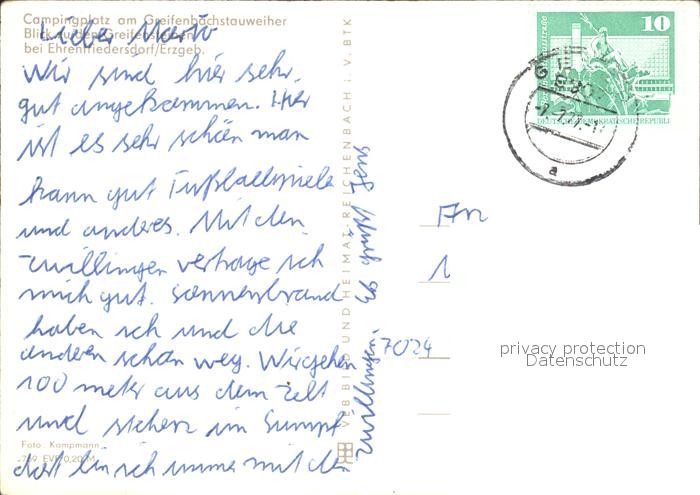 Campingplatz am Greifenbachstauweiher
Blick zu den Greifensteinen
bei Ehrenfriedersdorf/Erzgeb.
Lieber Mario
Wir sind hier sehr
gut angekommen. Hier
ist es sehr schön man
kann gut Fußballspiele
und anderes. Mit den
zwillingen vertrage ich
mich gut. Sonnenbrand
haben ich und die
anderen schon weg. Wir gehen
100 meter aus dem zelt
und stehen im Sumpf
dort bin ich immer mit den
zwillingen. Es grüßt Jens
Foto: Kampmann
EVP 0,20 M
VEB BILD UND HEIMAT REICHENBACH i. V. BTK
10
DEUTSCHE DEMOKRATISCHE REPUBLIK
a
An
1
7024
privacy protection
Datenschutz